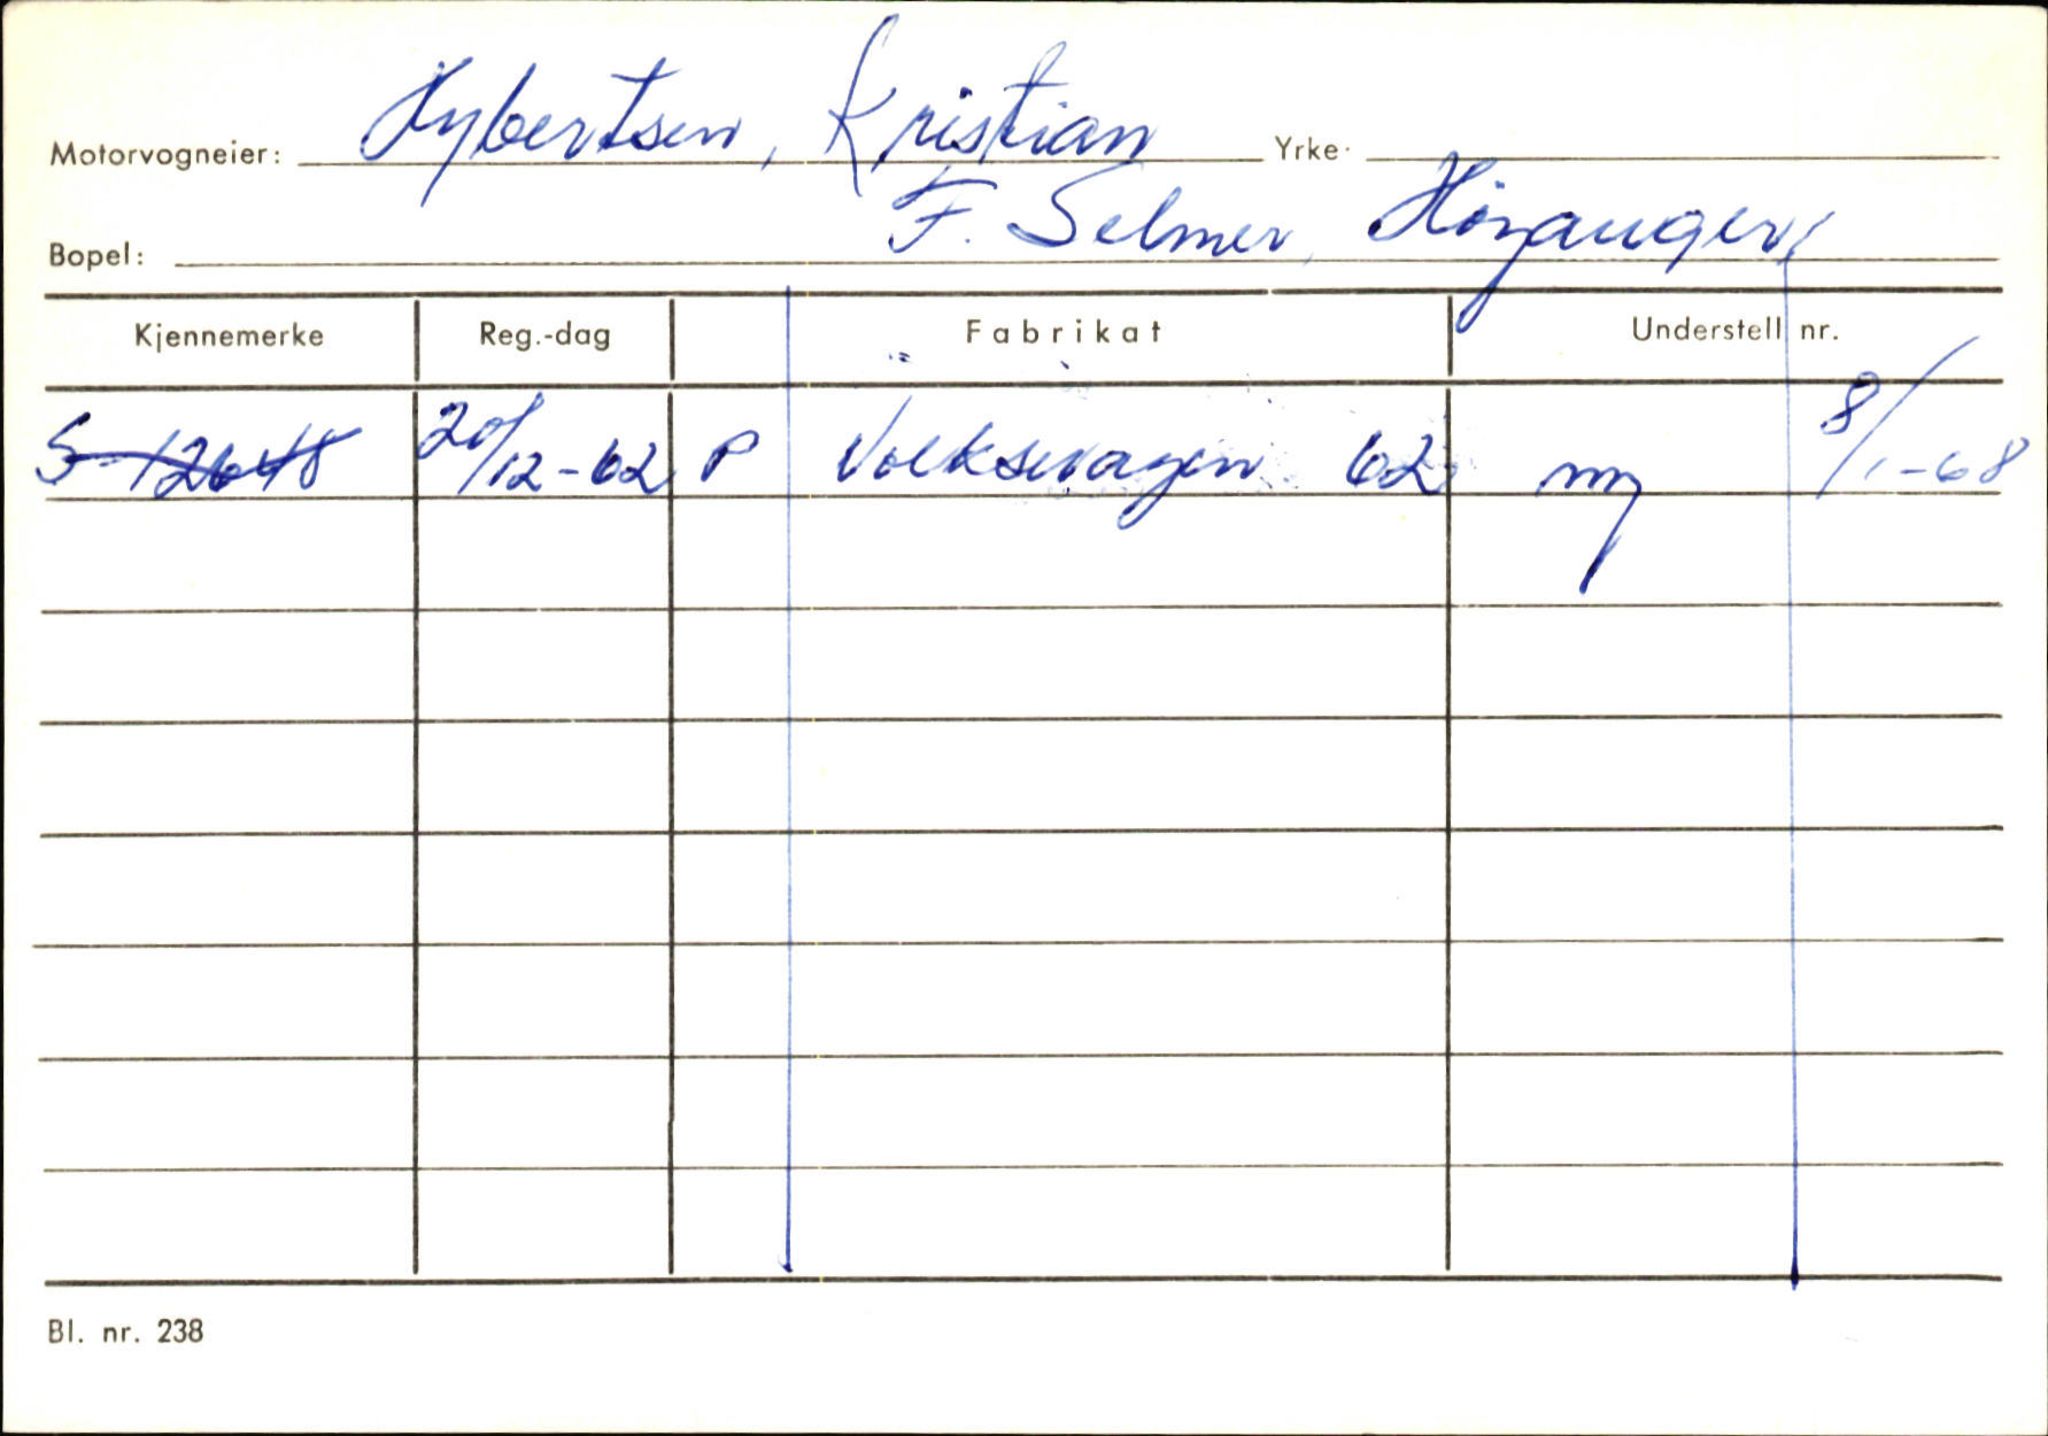 Motorvogneier: Nybertsen, Kristian Yrke
Bopel: F. Selmer, Høyanger,
Kjennemerke Reg.-dag Fabrikat Understell nr.
S-12648 20/12-62 P Volkswagen 62 ny 8/1-68
Bl. nr. 238